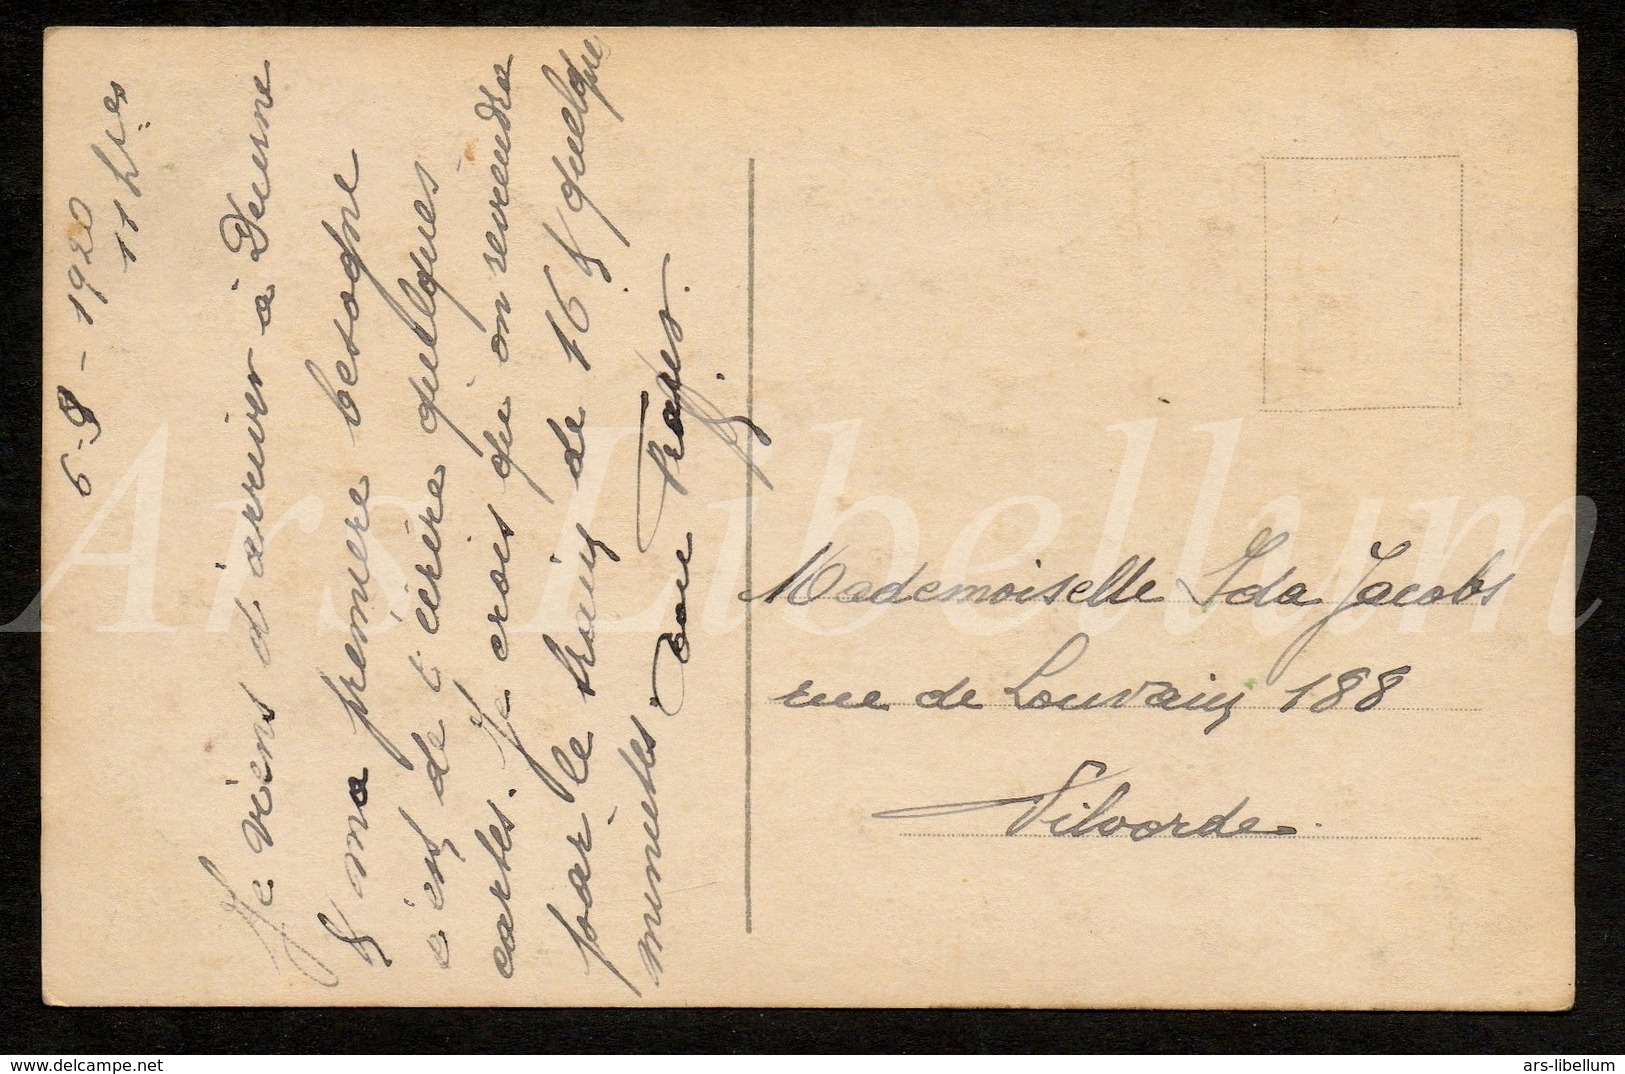 6-9-1920
11 hres
Je viens d'arriver à Deurne
& ma première besogne
c'est de t'écrire quelques
cartes. Je crois qu'on reviendra
par le train de 16 h quelque
minutes.
Mademoiselle Ida Jacobs
rue de Louvain 188
Vilvorde.
Ars Libellum
delcampe.net
ars-libellum